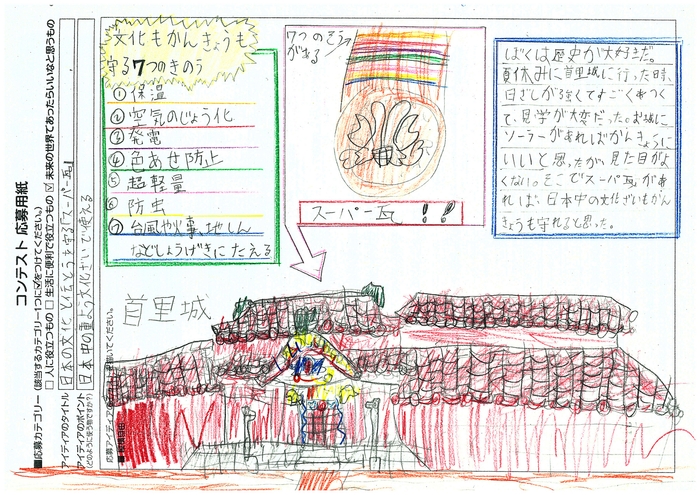 コンテスト 応募用紙
■応募カテゴリー(該当するカテゴリー1つに☑をつけてください。)
□ 人に役立つもの □ 生活に便利で役立つもの ☑ 未来の世界であったらいいなと思うもの
アイディアのタイトル 日本の文化と伝とうを守る「スーパー瓦」
アイディアのポイント 日本中の重よう文化ざいで使える
(どのように使う物ですか?)
文化もかんきょうも
守る7つのきのう
① 保温
② 空気のじょう化
③ 発電
④ 色あせ防止
⑤ 超軽量
⑥ 防虫
⑦ 台風や火事、地しん
などしょうげきにたえる
7つのそう
がある
スーパー瓦!!
ぼくは歴史が大好きだ。
夏休みに首里城に行った時、
日ざしが強くてすごくあつく
て、見学が大変だった。お城に
ソーラーがあればかんきょうに
いいと思ったが、見た目がよ
くない。そこでスーパー瓦があ
れば、日本中の文化ざいもかん
きょうも守れると思った。
首里城